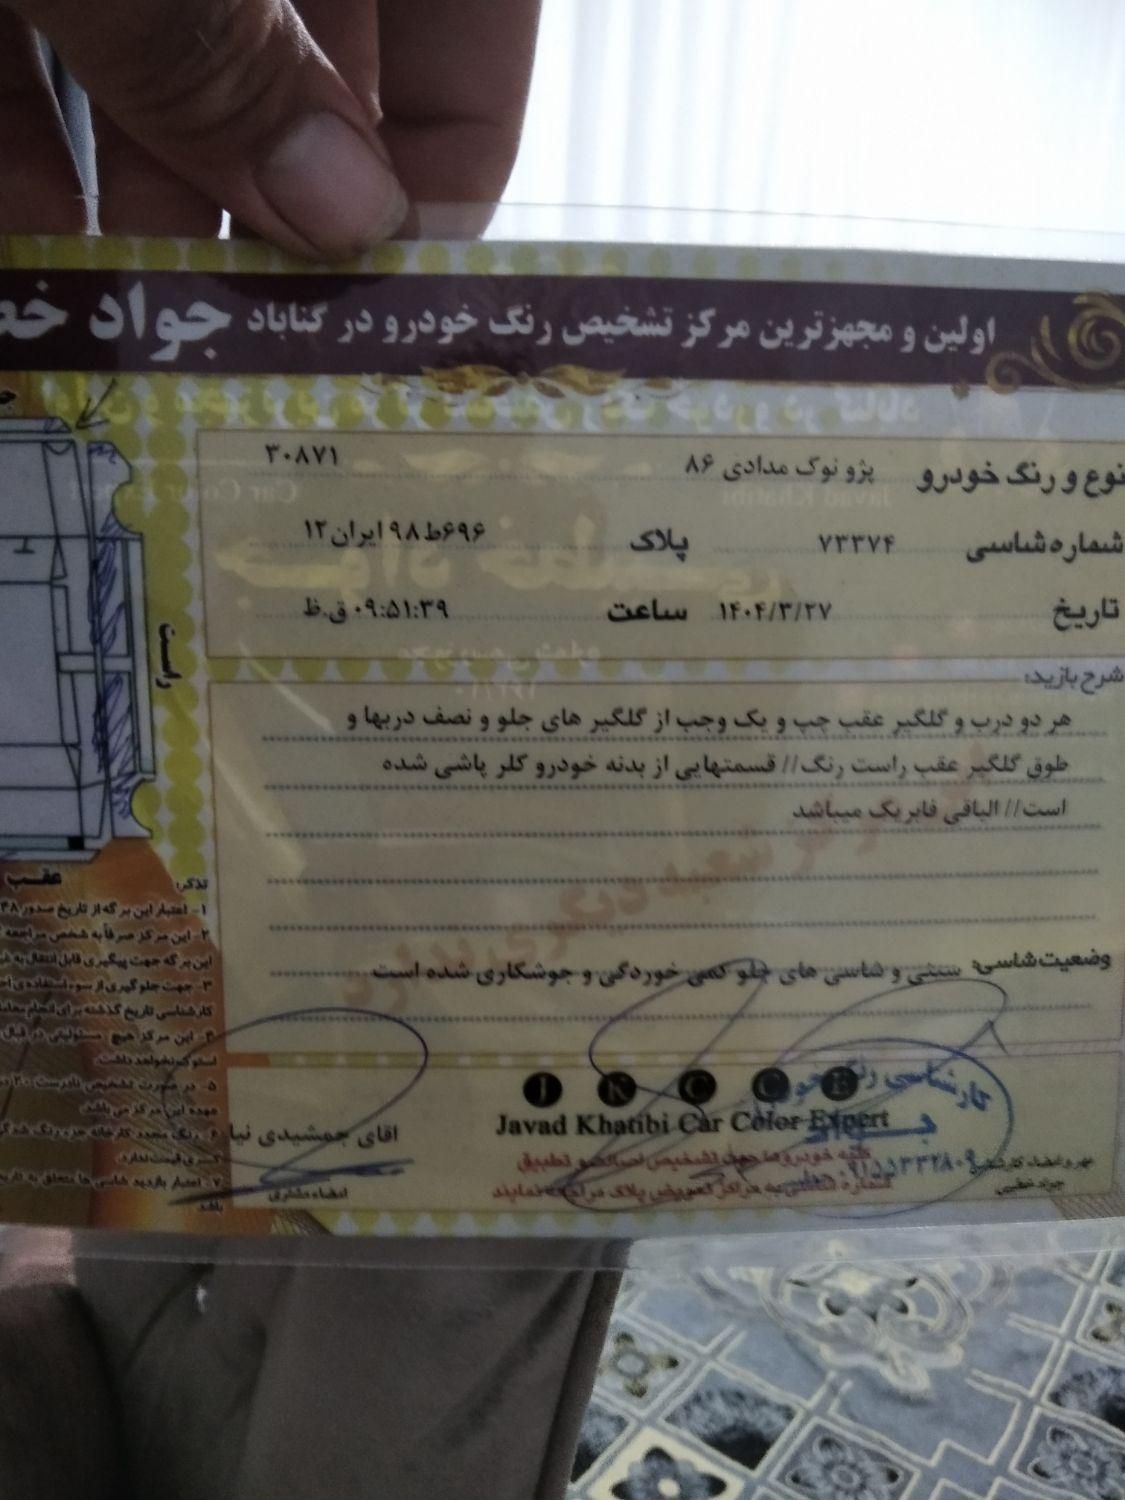 اولین و مجهزترین مرکز تشخیص رنگ خودرو در گناباد جواد
نوع و رنگ خودرو پژو نوک مدادی ۸۶ ۳۰۸۷۱
شماره شاسی ۷۳۳۷۴ پلاک ۶۹۶ط۹۸ ایران۱۲
تاریخ ۱۴۰۴/۳/۲۷ ساعت ۰۹:۵۱:۳۹ ق.ظ
راست
شرح بازید:
هر دو درب و گلگیر عقب چپ و یک وجب از گلگیر های جلو و نصف دربها و
طوق گلگیر عقب راست رنگ// قسمتهایی از بدنه خودرو کلر پاشی شده
است// الباقی فابریک میباشد
وضعیت شاسی: سینی و شاسی های جلو کمی خوردگی و جوشکاری شده است
عقب
تذکر:
۱- اعتبار این برگه از تاریخ صدور ۴۸
۲- این مرکز صرفاً به شخص مراجعه
این برگه جهت پیگیری قابل انتقال به
۳- جهت جلوگیری از سوء استفاده‌ی
کارشناسی تاریخ گذشته برای انجام
۴- این مرکز هیچ مسئولیتی در قبال
استوک نخواهد داشت.
۵- در صورت تشخیص نادرست
عهده این مرکز می باشد.
۶- رنگ مجدد کارخانه جزء رنگ
کسری قیمت ندارد.
۷- اعتبار بازدید شاسی ها متعلق به
باشد
J K C C E
Javad Khatibi Car Color Expert
کلیه خودروها جهت تشخیص اصالت و تطبیق
شماره شاسی به مراکز تعویض پلاک مراجعه نمایند
اقای جمشیدی نیا
امضاء مشتری
کارشناسی رنگ خودرو
جواد
مهر و امضاء کارشناس
جواد خطیبی